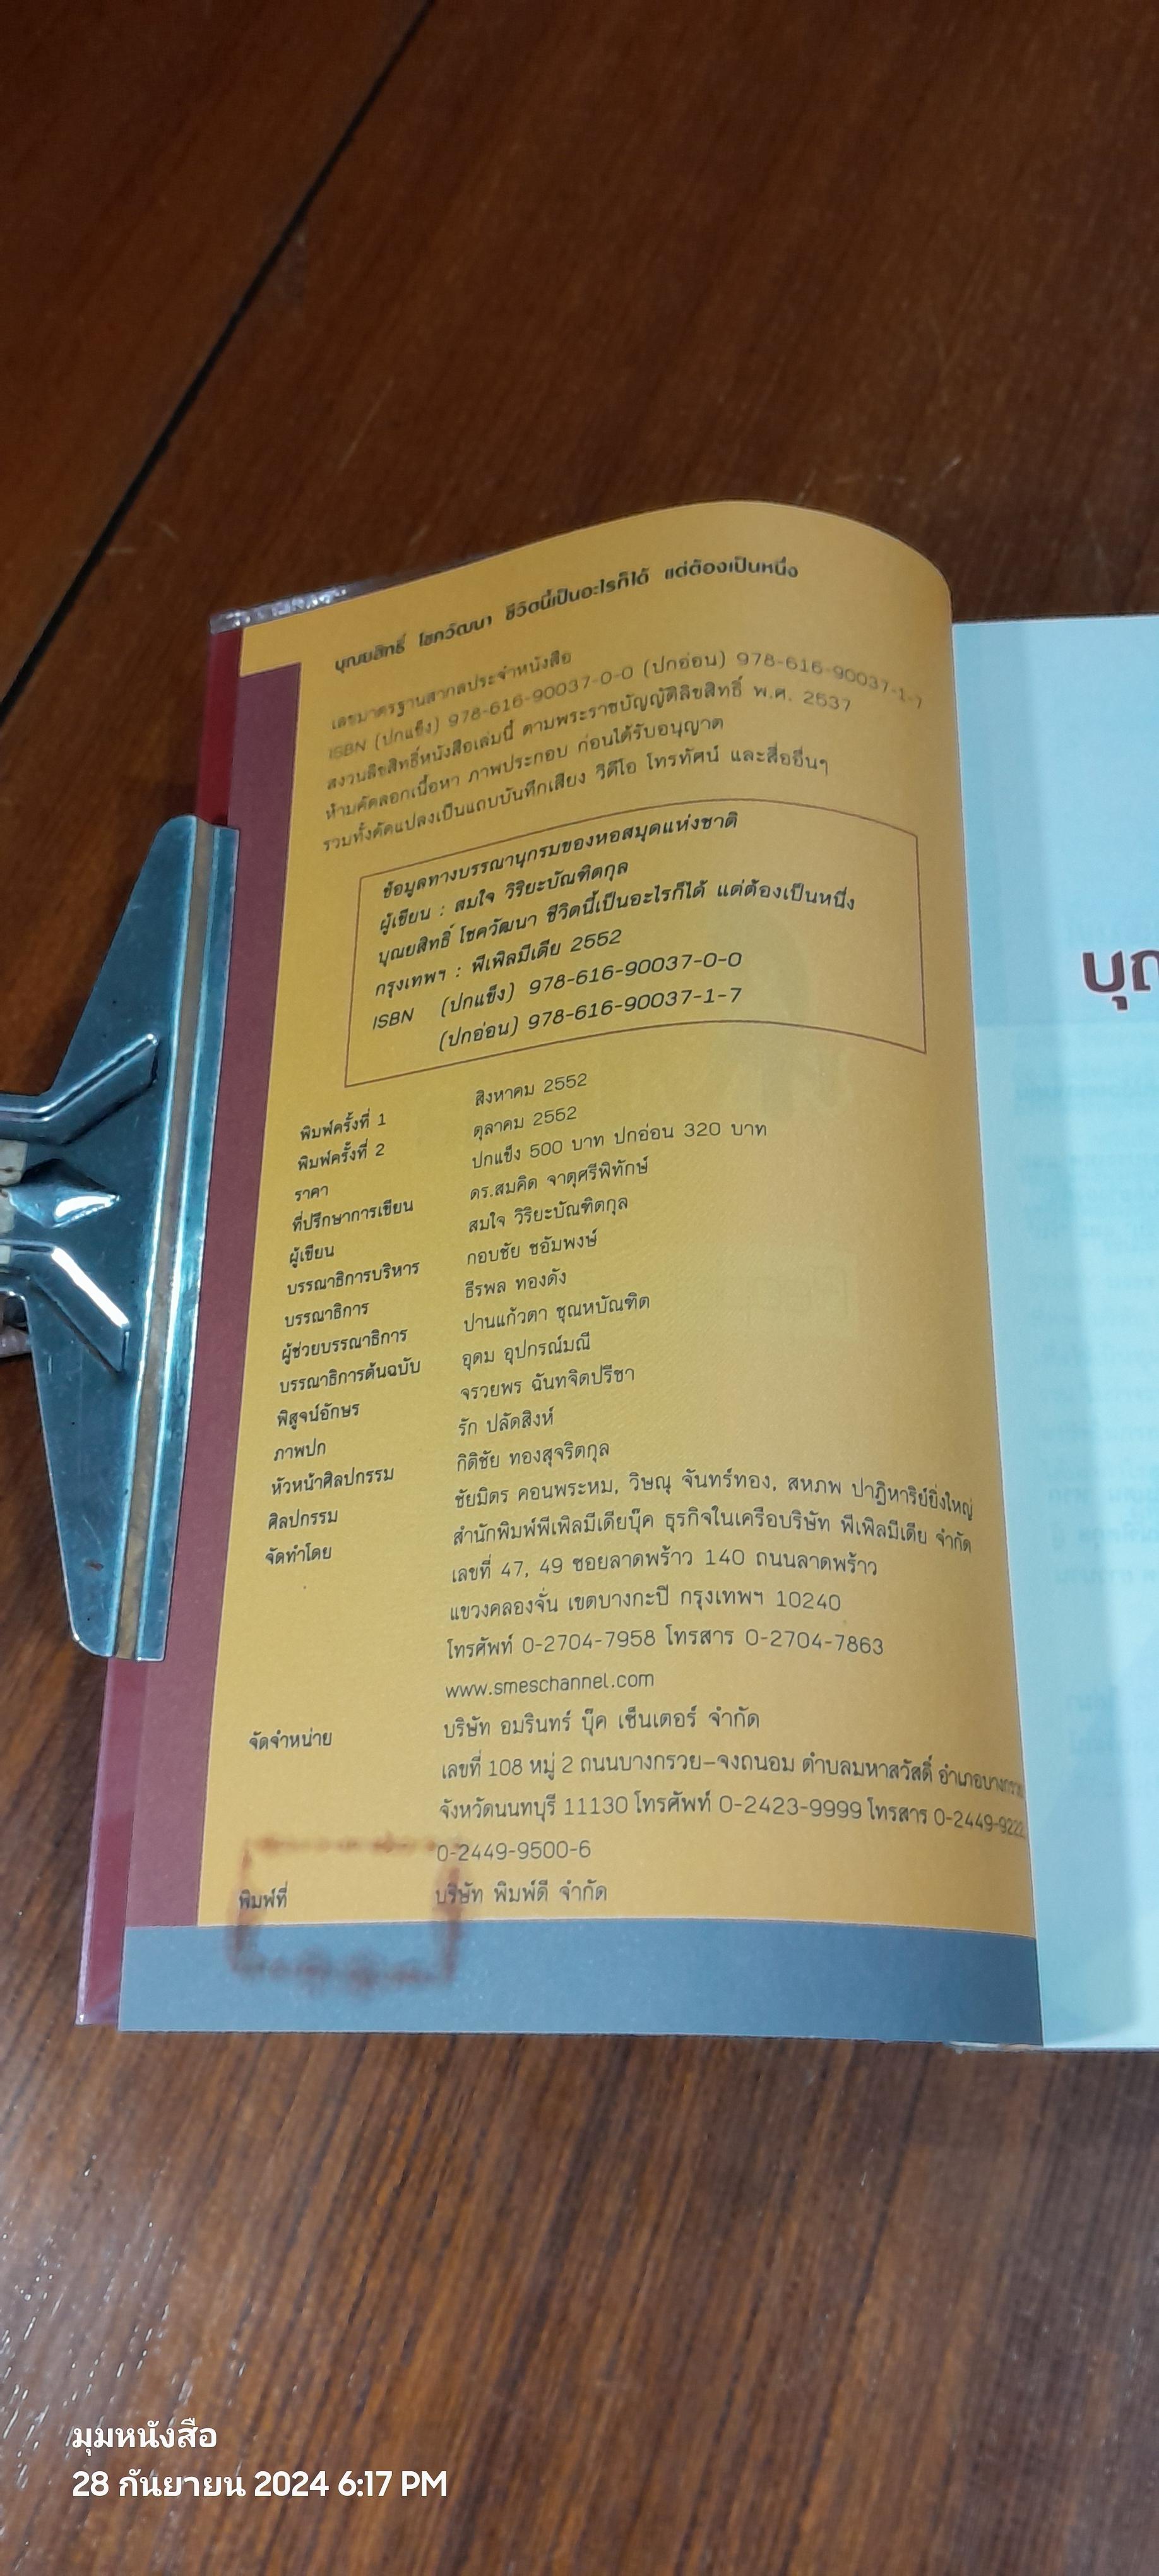 บุณยสิทธิ์ โชควัฒนา ชีวิตนี้เป็นอะไรก็ได้ แต่ต้องเป็นหนึ่ง
เลขมาตรฐานสากลประจำหนังสือ
ISBN (ปกแข็ง) 978-616-90037-0-0 (ปกอ่อน) 978-616-90037-1-7
สงวนลิขสิทธิ์หนังสือเล่มนี้ ตามพระราชบัญญัติลิขสิทธิ์ พ.ศ. 2537
ห้ามคัดลอกเนื้อหา ภาพประกอบ ก่อนได้รับอนุญาต
รวมทั้งดัดแปลงเป็นแถบบันทึกเสียง วิดีโอ โทรทัศน์ และสื่ออื่นๆ
ข้อมูลทางบรรณานุกรมของหอสมุดแห่งชาติ
ผู้เขียน : สมใจ วิริยะบัณฑิตกุล
บุณยสิทธิ์ โชควัฒนา ชีวิตนี้เป็นอะไรก็ได้ แต่ต้องเป็นหนึ่ง
กรุงเทพฯ : พีเพิลมีเดีย 2552
ISBN (ปกแข็ง) 978-616-90037-0-0
(ปกอ่อน) 978-616-90037-1-7
พิมพ์ครั้งที่ 1 สิงหาคม 2552
พิมพ์ครั้งที่ 2 ตุลาคม 2552
ราคา ปกแข็ง 500 บาท ปกอ่อน 320 บาท
ที่ปรึกษาการเขียน ดร.สมคิด จาตุศรีพิทักษ์
ผู้เขียน สมใจ วิริยะบัณฑิตกุล
บรรณาธิการบริหาร กอบชัย ชอัมพงษ์
บรรณาธิการ ธีรพล ทองดัง
ผู้ช่วยบรรณาธิการ ปานแก้วตา ชุณหบัณฑิต
บรรณาธิการต้นฉบับ อุดม อุปกรณ์มณี
พิสูจน์อักษร จรวยพร ฉันทจิตปรีชา
ภาพปก รัก ปลัดสิงห์
หัวหน้าศิลปกรรม กิติชัย ทองสุจริตกุล
ศิลปกรรม ชัยมิตร คอนพระหม, วิษณุ จันทร์ทอง, สหภพ ปาฏิหาริย์ยิ่งใหญ่
จัดทำโดย สำนักพิมพ์พีเพิลมีเดียบุ๊ค ธุรกิจในเครือบริษัท พีเพิลมีเดีย จำกัด
เลขที่ 47, 49 ซอยลาดพร้าว 140 ถนนลาดพร้าว
แขวงคลองจั่น เขตบางกะปิ กรุงเทพฯ 10240
โทรศัพท์ 0-2704-7958 โทรสาร 0-2704-7863
www.smeschannel.com
จัดจำหน่าย บริษัท อมรินทร์ บุ๊ค เซ็นเตอร์ จำกัด
เลขที่ 108 หมู่ 2 ถนนบางกรวย-จงถนอม ตำบลมหาสวัสดิ์ อำเภอบางกรวย
จังหวัดนนทบุรี 11130 โทรศัพท์ 0-2423-9999 โทรสาร 0-2449-9222,
0-2449-9500-6
พิมพ์ที่ บริษัท พิมพ์ดี จำกัด
มุมหนังสือ
28 กันยายน 2024 6:17 PM